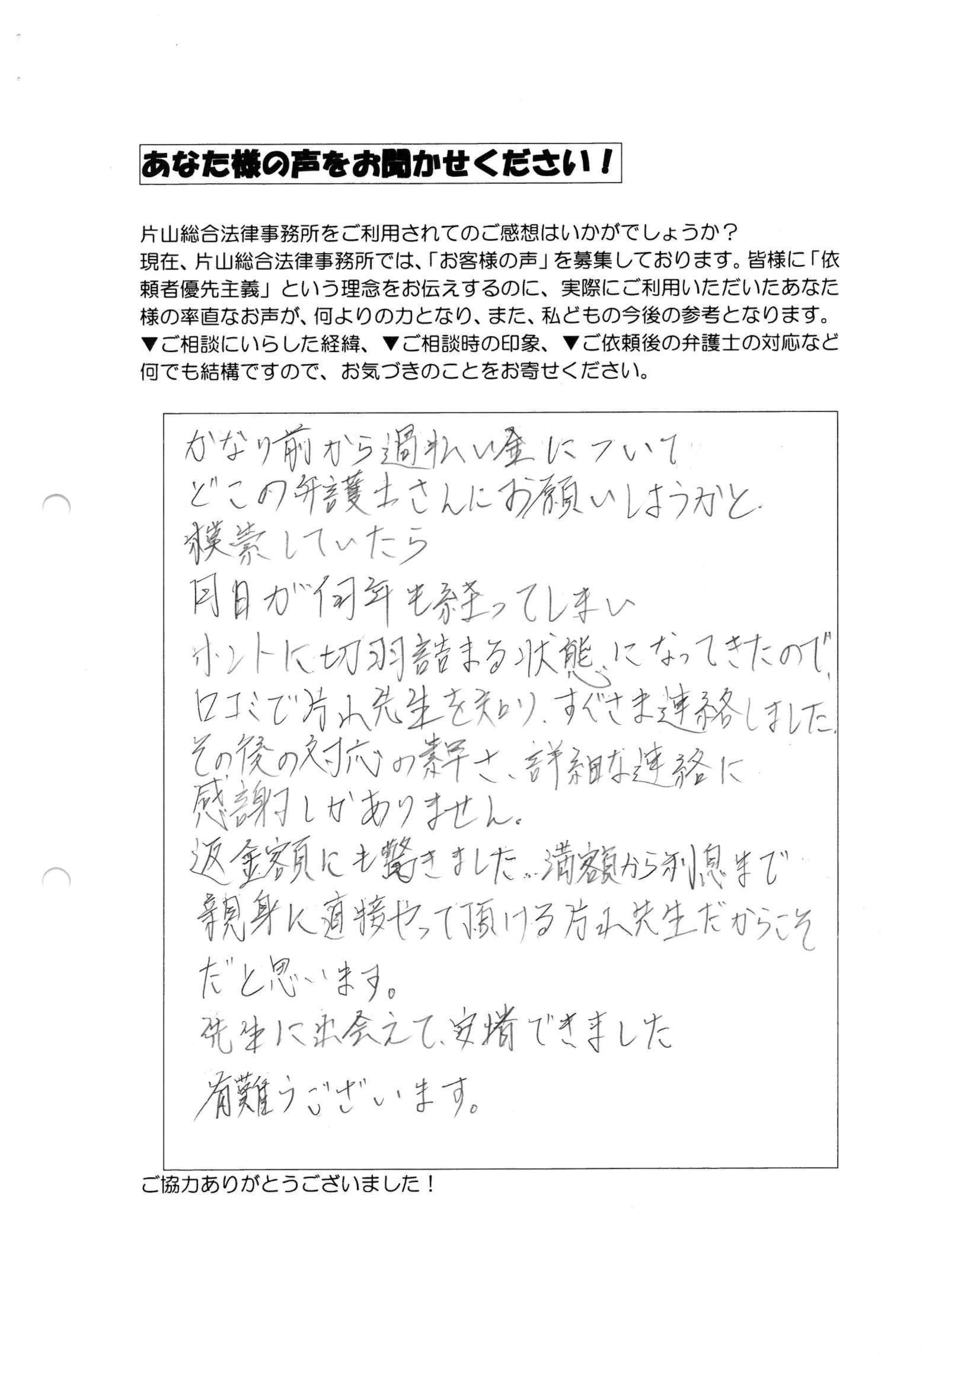 あなた様の声をお聞かせください！
片山総合法律事務所をご利用されてのご感想はいかがでしょうか？
現在、片山総合法律事務所では、「お客様の声」を募集しております。皆様に「依
頼者優先主義」という理念をお伝えするのに、実際にご利用いただいたあなた
様の率直なお声が、何よりの力となり、また、私どもの今後の参考となります。
▼ご相談にいらした経緯、▼ご相談時の印象、▼ご依頼後の弁護士の対応など
何でも結構ですので、お気づきのことをお寄せください。
かなり前から過払い金について
どこの弁護士さんにお願いしようかと、
模索していたら
月日が何年も経ってしまい
ホントに切羽詰まる状態になってきたので、
口コミで片山先生を知り、すぐさま連絡しました。
その後の対応の素早さ、詳細な連絡に
感謝しかありません。
返金額にも驚きました…満額から利息まで
親身に直接やって頂ける片山先生だからこそ
だと思います。
先生に出会えて、安堵できました
有難うございます。
ご協力ありがとうございました！